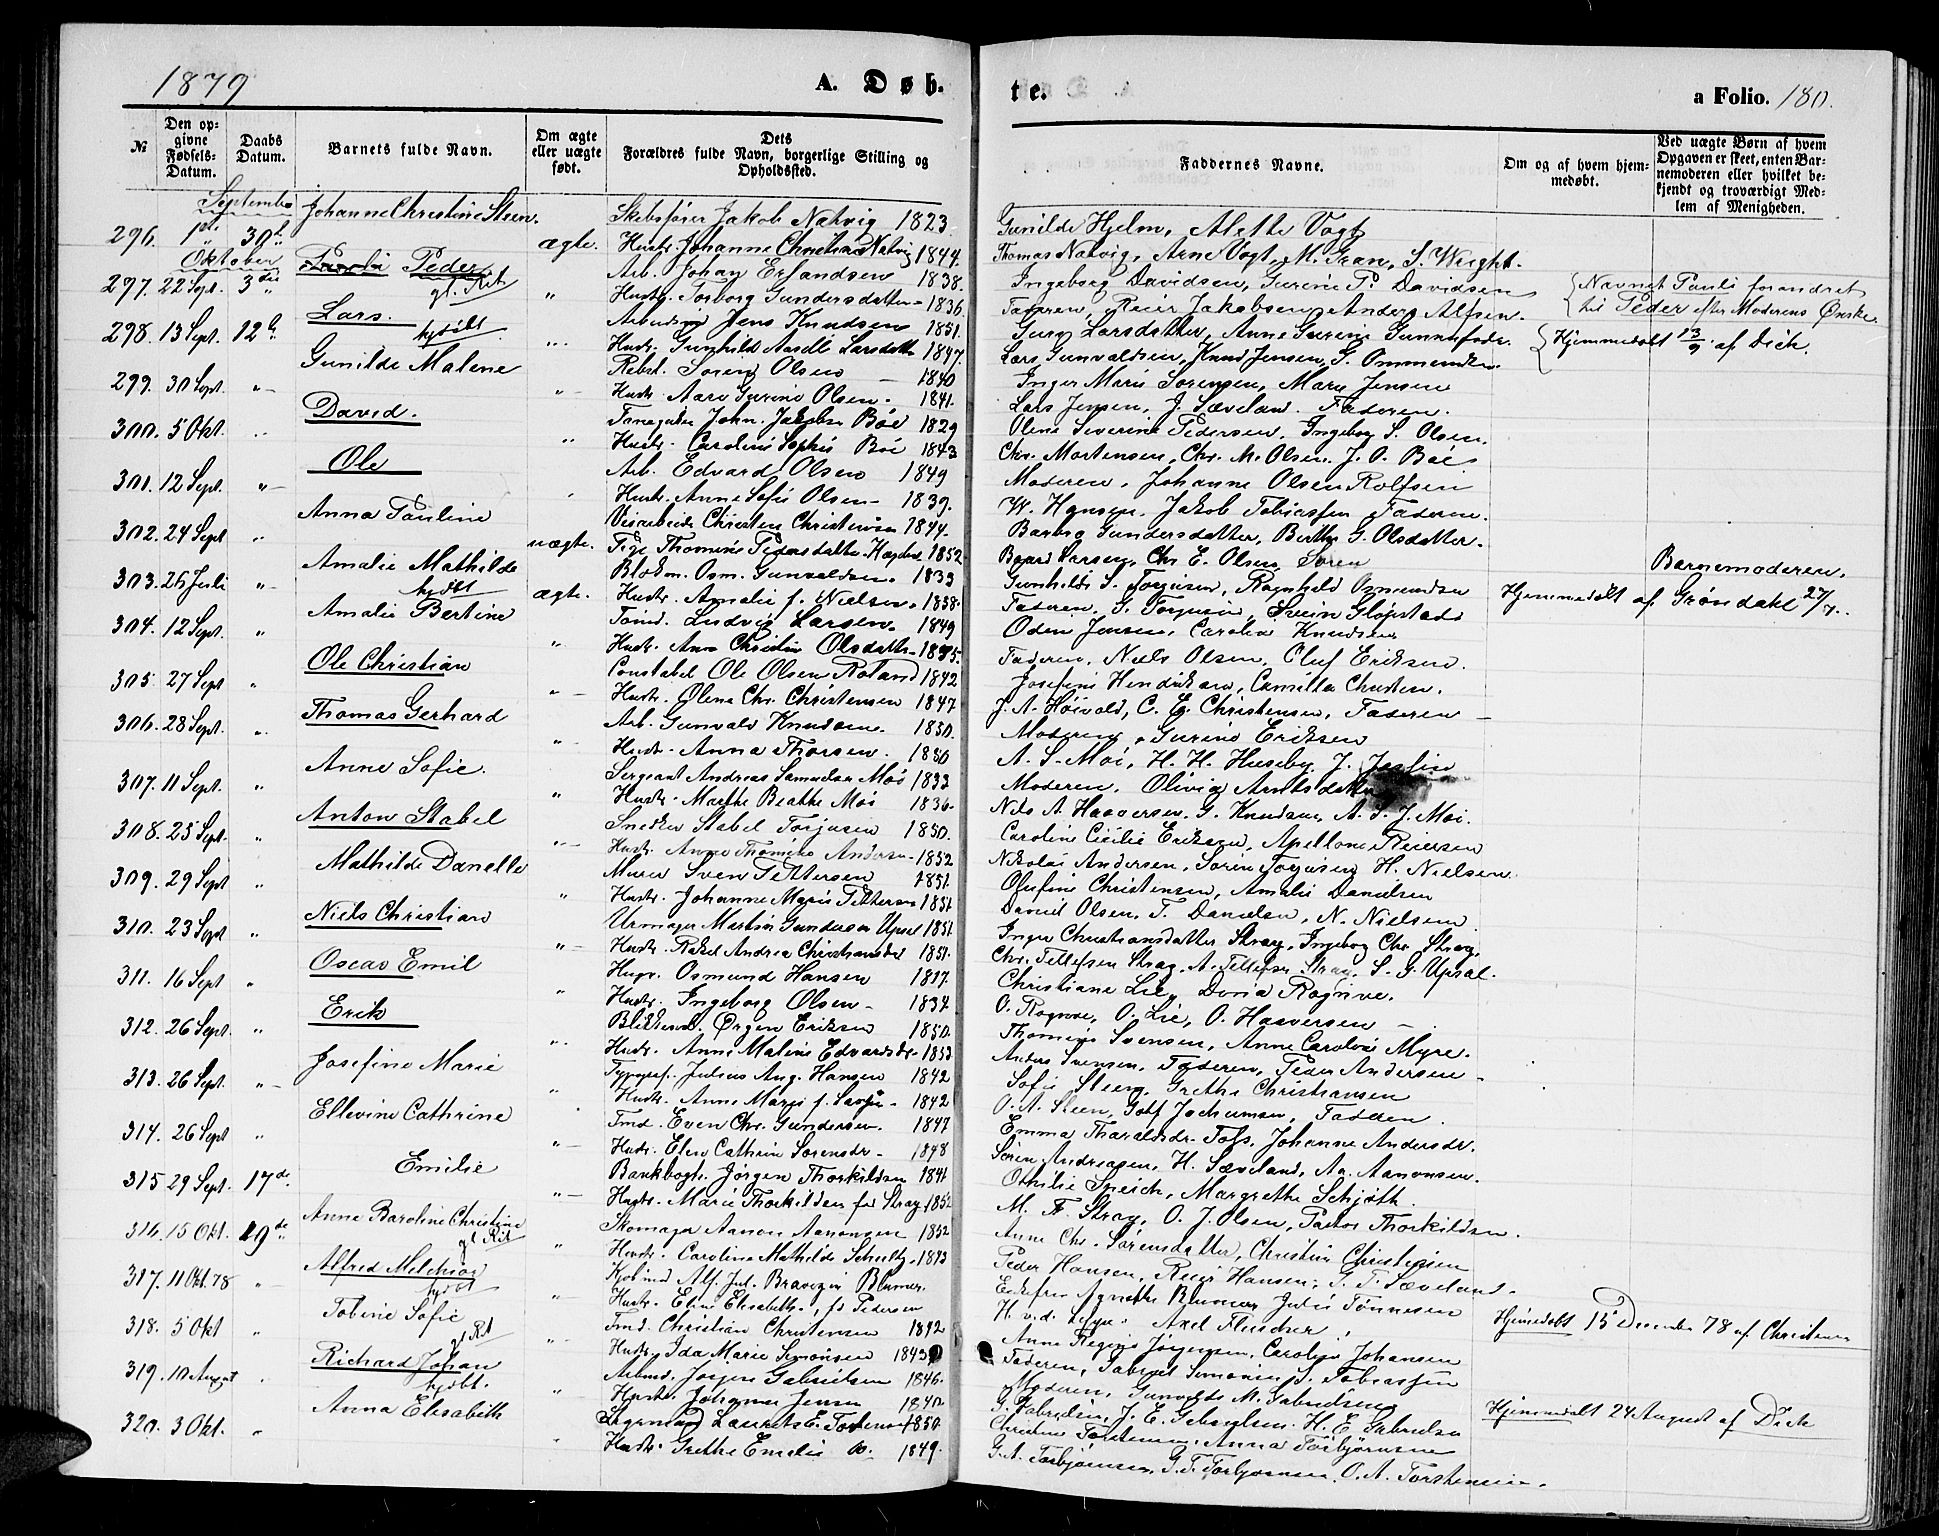 1879
A. Døb-
te.
a Folio. 180.
№
Den op-
givne
Fødsels-
Datum.
Daabs
Datum.
Barnets fulde Navn.
Om ægte
eller uægte
født.
Dets
Forældres fulde Navn, borgerlige Stilling og
Opholdssted.
Faddernes Navne.
Om og af hvem hjem-
medøbt.
Ved uægte Børn af hvem
Opgaven er skeet, enten Bar-
nemoderen eller hvilket be-
kjendt og troværdigt Med-
lem af Menigheden.
September Johanne Christine Steen. Skibsfører Jakob Natvig 1823 Gunilde Hjelm, Alette Vogt
296. 30 ægte. Hustr. Johanne Christiane Natvig 1844. Thomas Natvig, Arne Vogt, M. Gran, S. Wright.
Oktober Pauli Peder Arb. Johan Erlandsen 1838. Ingeborg Davidsen, Gurine P. Davidsen Navnet Pauli forandret
297. 22 Sept. 3die gl. Rit " Hustr. Torborg Gundersdatter 1836. Faderen, Reier Jakobsen Anders Alfsen. til Peder efter Moderens Ønske.
Lars. Jens Knudsen 1851. Guro Larsdatter, Anne Gurine
298. 13 Sept. 12 hjdøbt Hustr. Gunhild Aasel Larsdatter 1847. Lars Gunvaldsen, Knud Jensen, Hjemmedøbt 13/9 af Dick.
Gunilde Malene Søren Olsen 1840 Inger Marie Sørensen, Mary Jensen
299. 30 Sept. " Hustr. Gurine Olsen. 1841. Lars Jensen, J. Sæveland. Faderen.
David. John Jakobsen Bøe 1829 Olene Severine Pedersen, Ingeborg S. Olsen.
300. 5 Okt. " Hustr. Caroline Sophie Bøe 1843 Chr. Mortensen, Chr. M. Olsen, J. O. Bøe
Ole Arb. Edvard Olsen 1849 Moderen, Johanne Olsen Rolfsen
301. 12 Sept. " Hustr. Anne Sofie Olsen 1839. W. Hansen, Jakob Tobiassen Faderen.
Anna Pauline Christen Christensen 1844. Barbro Gundersdatter, Berthe G. Olsdatter.
302. 24 Sept " uægte. Pige Thomine Pedersdatter 1852. Baard Larsen, Chr. E. Olsen, Søren
Amalie Mathilde Osm. Gunvaldsen. 1833 Gunhilde S. Torjusen, Ragnhild Osmundsen Barnemoderen.
303. 26 Juli " hjdøbt ægte. Hustr. Amalie f. Nielsen. 1838. Faderen, Hjemmedøbt af Grøndahl 27/7.
Amalie Bertine Ludvig Larsen. 1849 Oden Jensen, Caroline Knudsen
304. 12 Sept. " " Hustr. Olsdatter Faderen, Niels Olsen, Oluf Eriksen.
Ole Christian Constabel Ole Olsen 1842 Josefine Hendriksen, Camilla
305. 27 Sept " " Hustr. Olene Chr. Christensen 1847 J. A. Høivold, C. Christensen, Faderen
Thomas Gerhard Arb. Gunvald Knudsen. 1850. Moderen, Gurine Eriksen
306. 28 Sept. " " Hustr. Anna Thorsen. 1850 A. S. Moi, H. H. Huseby,
Anne Sofie. Sergeant Andreas Samuelsen Moi 1833 Moderen. Olivia
307. 11 Sept. " " Hustr. Marthe Beathe Moi 1836. Nils A. Haaversen, G. Knudsen, A. S. J. Moi.
Anton Stabel Snedker Stabel Torjusen 1850. Caroline Cicilie Eriksen, Apellone Reiersen
308. 25 Sept. " " Hustr. Anne 1852 Nikolai Andersen, Sørine Torjusen H. Nielsen.
Mathilde Danelle Murer Sven Pettersen 1851. Olufine Christensen, Amalie Danielsen
309. 29 Sept " " Hustr. Johanne Marie Pettersen 1851 Daniel Olsen, T. Danielsen, N. Nielsen
Niels Christian Urmager Martin Gundersen Upsal 1851. Inger Christiansdatter Stray, Ingeborg Chr. Stray,
310. 23 Sept " " Hustr. Rakel Andrea 1851. Chr. Tellefsen Stray, A. Tellefsen Stray, S. G. Upsal.
Oscar Emil Osmund Hansen 1817. Christiane Lie,
311. 16 Sept " " Hustr. Ingeborg Olsen 1834 O. Lie, O. Haaversen
Erik Ørgen Eriksen 1850. Thomine Svensen, Anne Caroline Myre.
312. 26 Sept. " " Hustr. Anne Maline Edvardsdr. 1853 Anders Svensen, Faderen, Peder Andersen
Josefine Marie Typogr. Julius Aug. Hansen 1842 Sofie Steen, Grethe Christiansen
313. 26 Sept. " " Hustr. Anne Marie f. 1842 O. A. Steen, Jochumsen, Faderen.
Ellevine Cathrine Tmd. Even Chr. Gundersen. 1847 Emma Tharaldsdr. Johanne Andersdr.
314. 26 Sept " " Hustr. Elen Cathrine Sørensdr. 1848 Søren Andreasen, H. Sæveland, Aa. Aanonsen.
Emilie Jørgen Thorkildsen 1841 Othilie Margrethe Schjøth.
315 29 Sept. 17de. " Hustr. Marie Thorkildsen fød Stray 1852 M. F. Stray, O. J. Olsen, Pastor Thorkildsen.
Anne Baroline Christine Skomager Aanon Aanonsen 1852 Anne Chr. Sørensdatter, Christine Christensen
316. 15 Okt. 19de gl. Rit " Hustr. Caroline Mathilde Schultz Peder Hansen, Reier Hansen, G. T. Sæveland.
Alfred Melchior Kjøbmd Alf. Jul. Agnethe Blumer Julie Tønnesen
317. 11 Okt. 78 " hjdøbt " Hustr. Eline Elisabeth, f. Pedersen Axel Fleischer. Hjemedøbt 15 December 78 af Christensen
Tobine Sofie Tmd. Christian Christensen 1842 Anne Regine Jørgensen, Caroline Johansen
318. 5 Okt " gl. Rit " Hustr. Ida Marie Simonsen 1843 Faderen, Gabriel Simonsen, S. Tobiassen
Richard Johan Arbmd. Jørgen Gabrielsen 1846. Moderen, Gunvalde M. Gabrielsen
319. 10 August hjdøbt. " Hustr. Johanne Jensen 1840 G. Gabrielsen, J. E. Gabrielsen, H. E. Gabrielsen Hjemmedøbt 24 August af Dick
Anna Elisabeth Laurits E. 1850 Christine Torstensen, Anna Torbjørnsen
320. 3 Okt. " " Hustr. Grethe Emelie do. 1849. G. A. Torbjørnsen, G. T. Torbjørnsen, O. A. Torstensen.